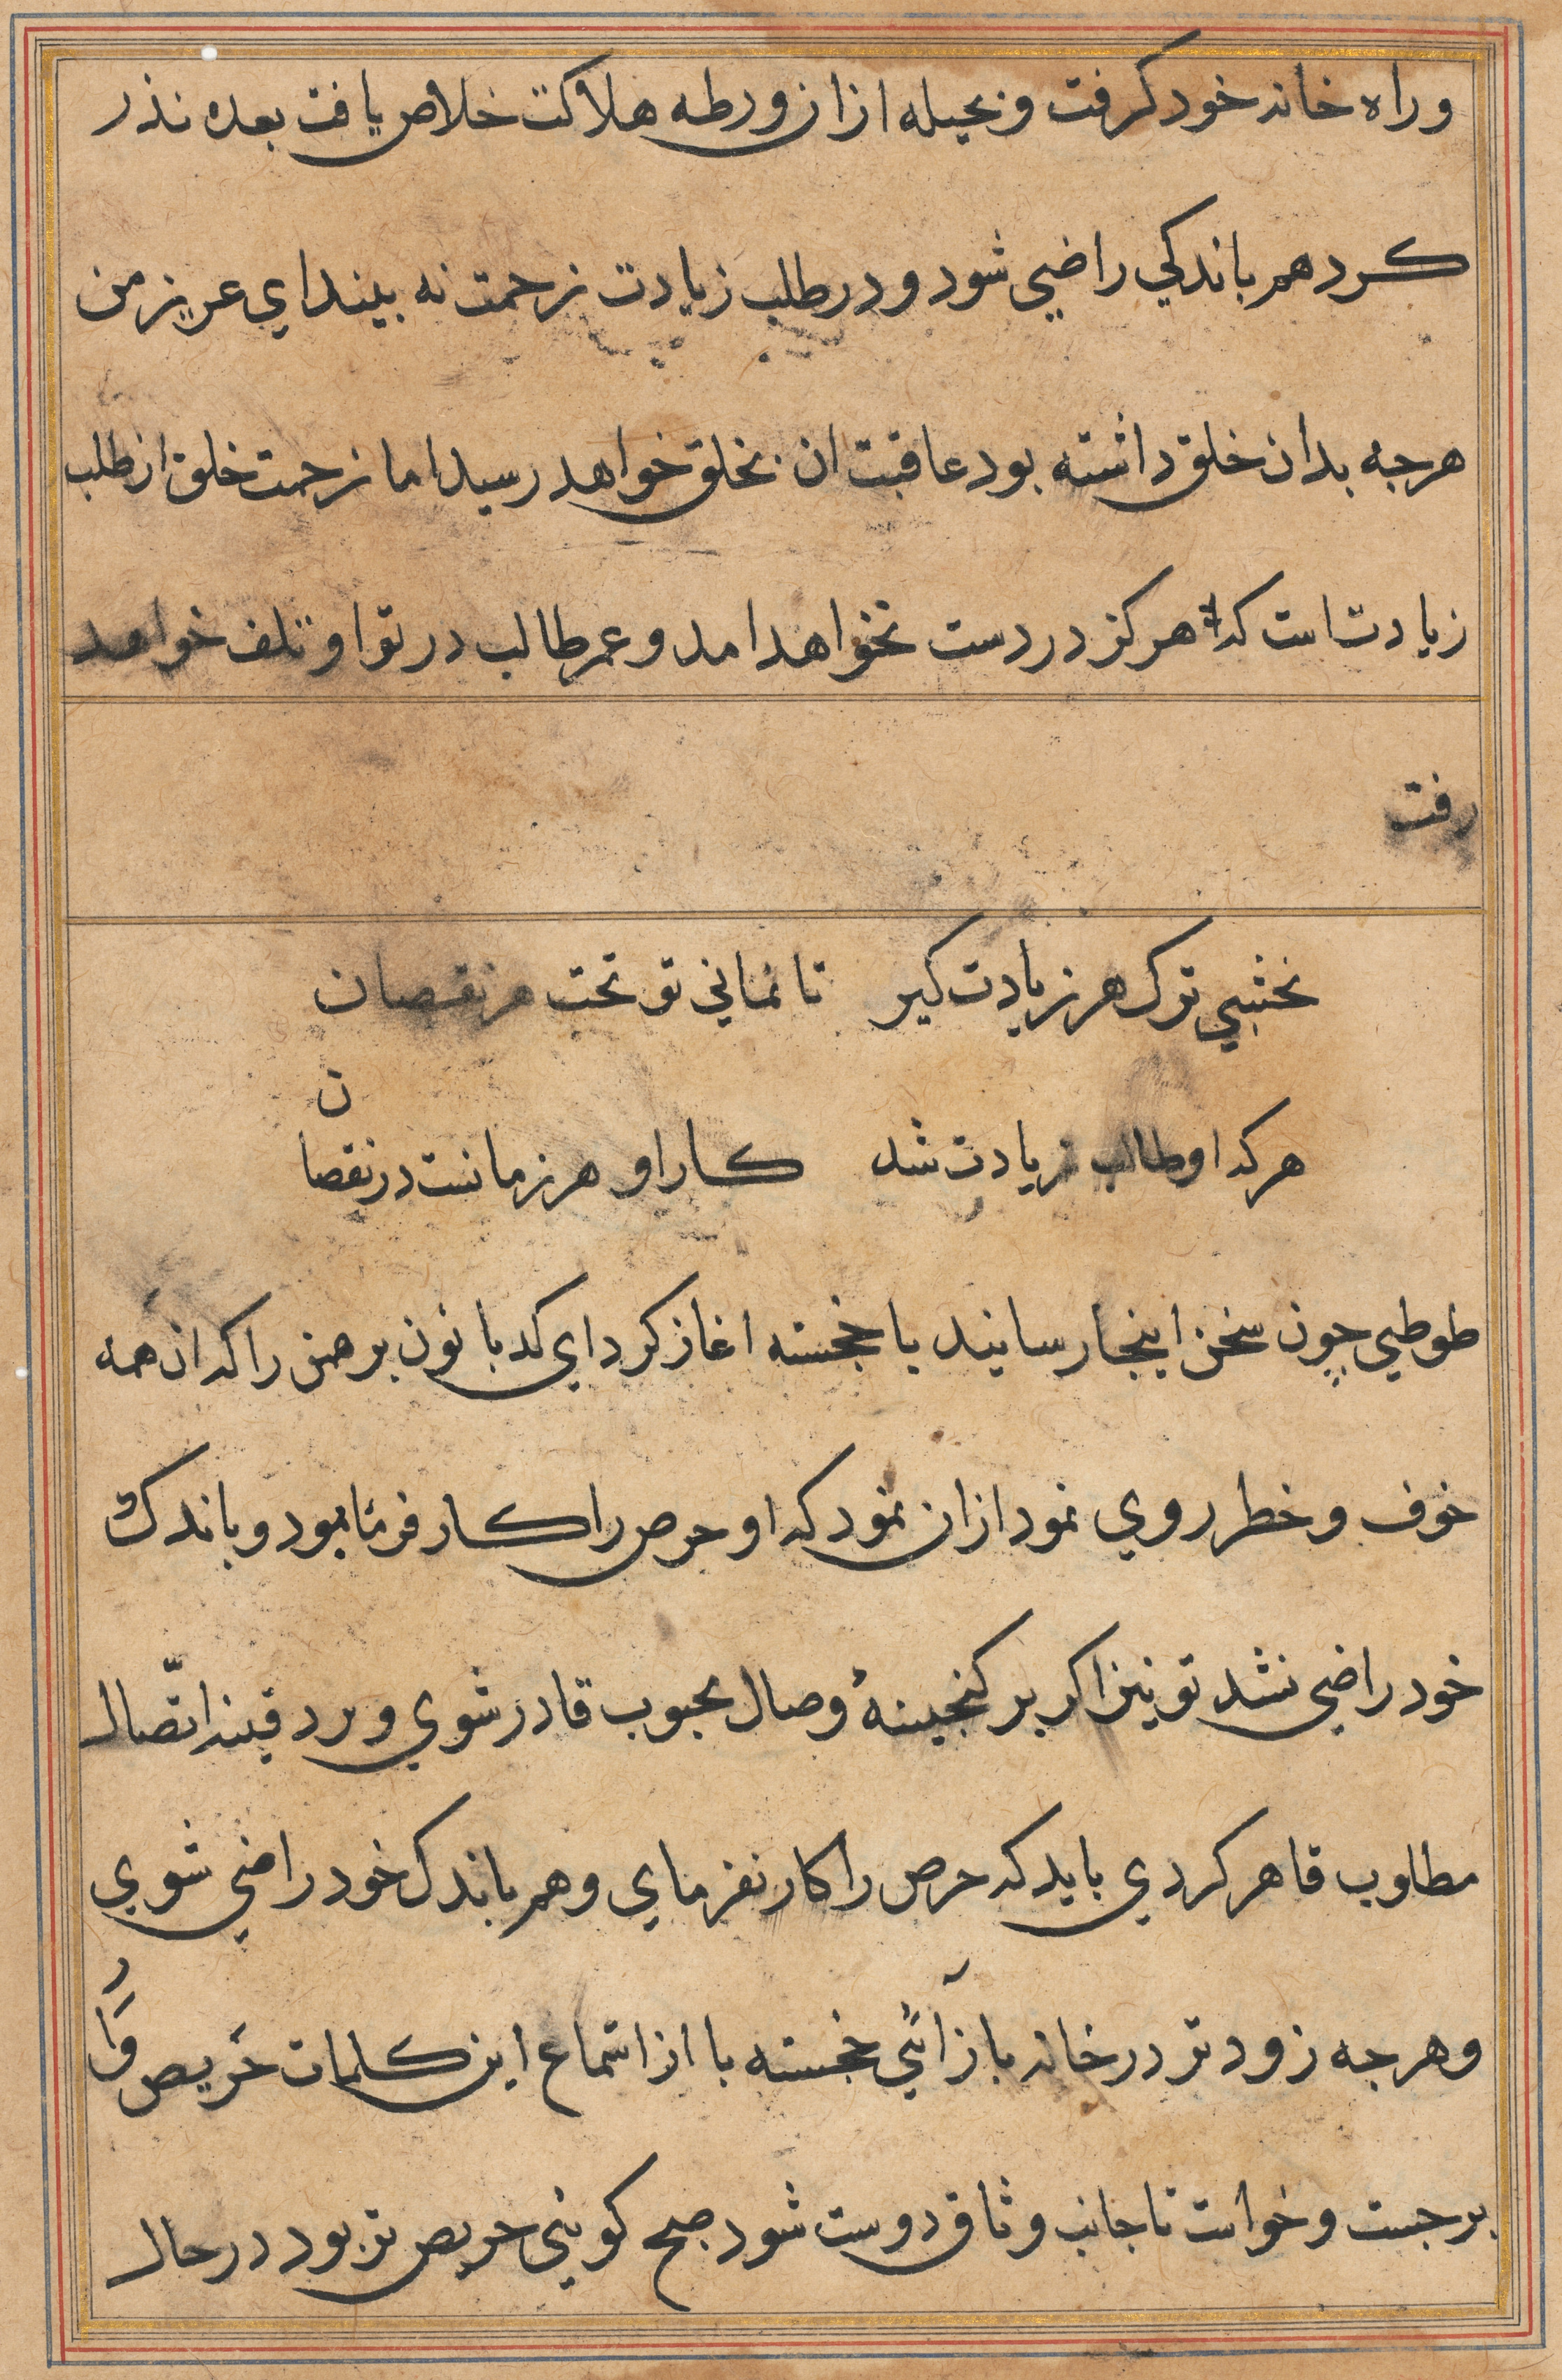 و راه خانه خود کرفت و بحیله ازان ورطه هلاکت خلاص یافت بعده نذر
کرد هم باندکی راضی شود و در طلب زیادت زحمت نه بیند ای عزیز من
هرجه بدان خلق داشته بود عاقبت ان بخلق خواهد رسید اما زحمت خلق از طلب
زیادت است که هرکز در دست نخواهد امد و عمر طالب در توا و تلف خواهد
رفت
نخشبی ترک هر زیادت کیر تا نمانی تو تحت هر نقصان
هرکه او طالب زیادت شد کار او هر زمانست در نقصان
طوطی چون سخن اینجا رسانید با خجسته اغاز کرد ای کدبانون برهمن را که ان همه
خوف و خطر روی نمود ازان نمود که او حرص را کار فرمابود و باندک
خود راضی نشد تو نیز اکر بر کنجینهٔ وصال محبوب قادر شوی و بر دفینه اتّصال
مطلوب قاهر کردی باید که حرص را کار نفرمای و هم باندک خود راضی شوی
و هرجه زودتر در خانه بازآئی خجسته با از استماع این کلمات حَریص وَار
برجست و خواست تا جانب وثاق دوست شود صبح کوئی حریص تر بود در حال